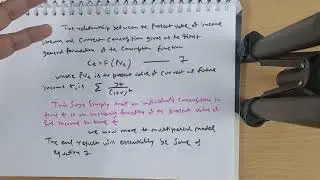 The relationship between the Present value of income
stream and Current Consumption gives us the first
general foundation of the Consumption function
Ct = F(PVt) —— 7
where PVt is the present value of Current & future
income t, is Σ yt/(1+r)^t
This says simply that an individual's Consumption in
time t is an increasing function of the present value of
his income in time t
we now move to multiperiod model
The end result will essentially be same of
equation 7